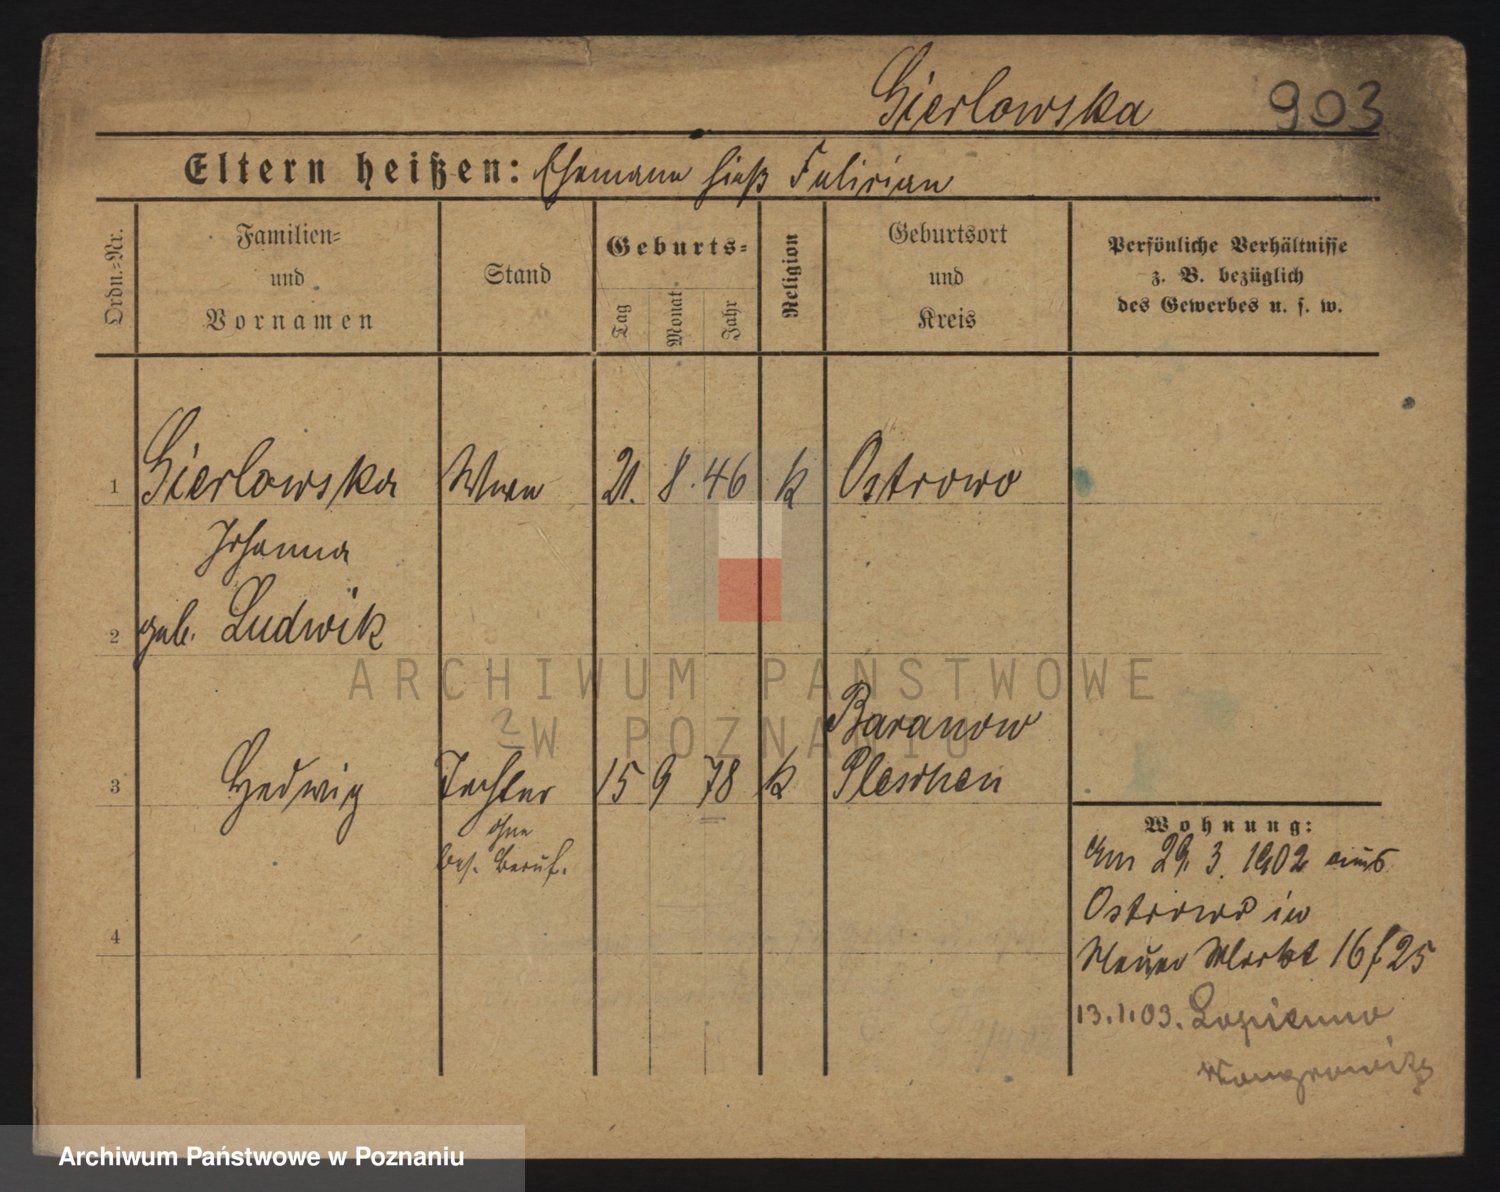 Gierlowska 903
Eltern heißen: Ehemann hieß Felician
Ordn.-Nr.
Familien-
und
Vornamen
Stand
Geburts-
Tag
Monat
Jahr
Religion
Geburtsort
und
Kreis
Persönliche Verhältnisse
z. B. bezüglich
des Gewerbes u. s. w.
1 Gierlowska Wwe 21. 8. 46 k Ostrowo
Johanna
2 geb. Ludwik
Baranow
3 Hedwig Tochter 15 9 78 k Pleschen
ohne
bes. Beruf.
4
Wohnung:
Am 29. 3. 1902 aus
Ostrowo in
Neuer Markt 16 f 25
13.1.03. Lopienno
Wongrowitz
ARCHIWUM PAŃSTWOWE
W POZNANIU
Archiwum Państwowe w Poznaniu